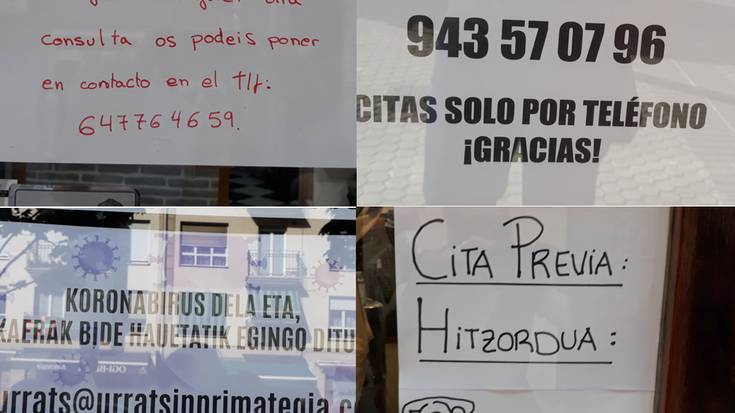 consulta os podeis poner
en contacto en el tlf:
647764659.
943 57 07 96
CITAS SOLO POR TELÉFONO
¡GRACIAS!
KORONABIRUS DELA ETA,
BIDE HAUETATIK EGINGO
CITA PREVIA:
HITZORDUA: